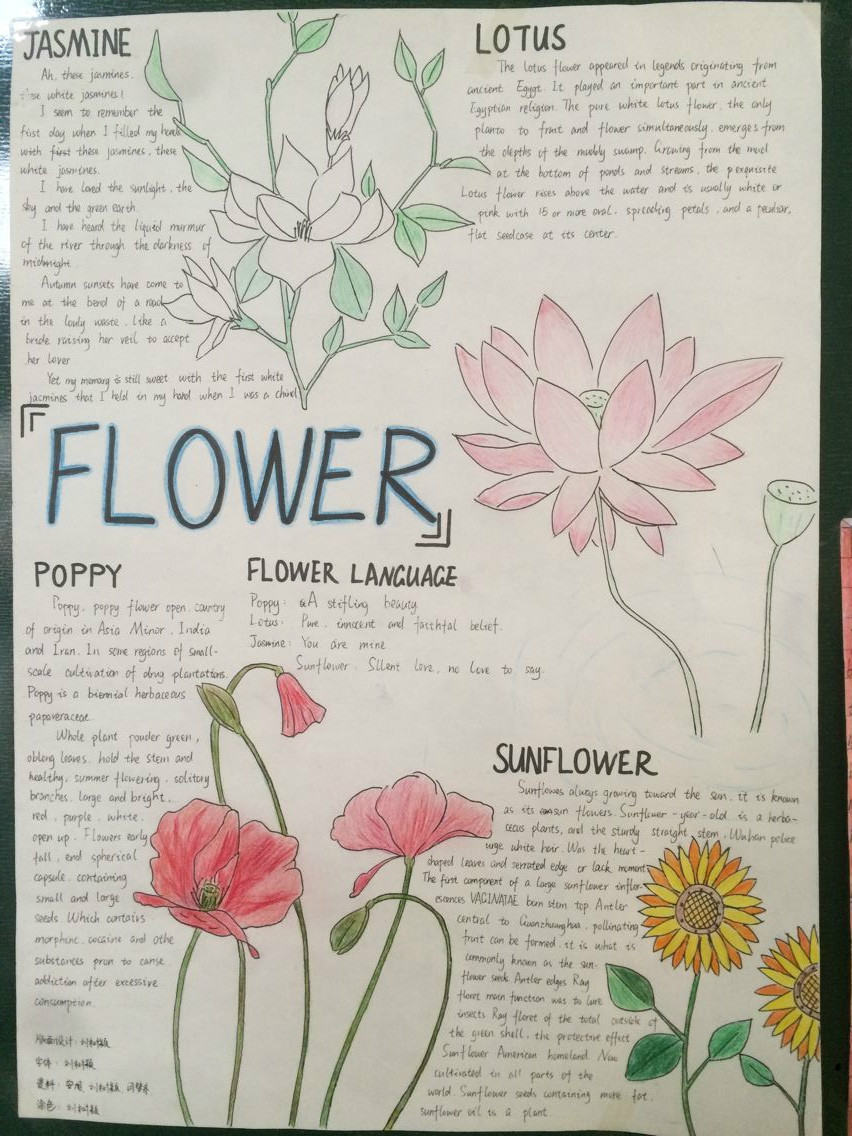 JASMINE
Ah, these jasmines,
these white jasmines!
I seem to remember the
first day when I filled my hands
with first these jasmines, these
white jasmines.
I have loved the sunlight, the
sky and the green earth.
I have heard the liquid murmur
of the river through the darkness of
midnight.
Autumn sunsets have come to
me at the bend of a road
in the lonly waste, like a
bride raising her veil to accept
her lover
Yet my memory is still sweet with the first white
jasmines that I held in my hand when I was a child
LOTUS
The lotus flower appeared in legends originating from
ancient Egypt. It played an important part in ancient
Egyptian religion. The pure white lotus flower, the only
plant to fruit and flower simultaneously, emerges from
the depths of the muddy swamp. Growing from the mud
at the bottom of ponds and streams, the exquisite
Lotus flower rises above the water and is usually white or
pink with 15 or more oval, spreading petals, and a peculiar,
flat seedcase at its center.
「FLOWER」
POPPY
Poppy, poppy flower open, country
of origin in Asia Minor, India
and Iran. In some regions of small-
scale cultivation of drug plantations.
Poppy is a biennial herbaceous
papaveraceae.
Whole plant powder green,
oblong leaves, hold the stem and
healthy, summer flowering, solitory
branches, large and bright,
red, purple, white.
open up. Flowers early
fall, end spherical
capsule, containing
small and large
seeds. Which contains
morphine, cocaine and othe
substances pron to canse
addiction after excessive
consumption.
版面设计:
字体:
资料:
涂色:
FLOWER LANGUAGE
Poppy: A stifling beauty
Lotus: Pure, innocent and faithful belief.
Jasmine: You are mine
Sunflower: Silent love, no love to say.
SUNFLOWER
Sunflowes always growing toward the sun, it is known
as its sun flowers. Sunflower -year-old is a herba-
ceous plants, and the sturdy straight stem, Wuhan police
urge white hair. Was the heart-
shaped leaves and serrated edge or lack moment
The first component of a large sunflower inflor-
escences VAGINATAE born stem top Antler
central to Guanzhuanghua, pollinating
fruit can be formed, it is what is
commonly known as the sun-
flower seeds Antler edges Ray
floret main function was to lure
insects Ray floret of the total outside of
the green shell, the protective effect
Sunflower American homeland. Now
cultivated in all parts of the
world. Sunflower seeds containing more fat,
sunflower oil is a plant.